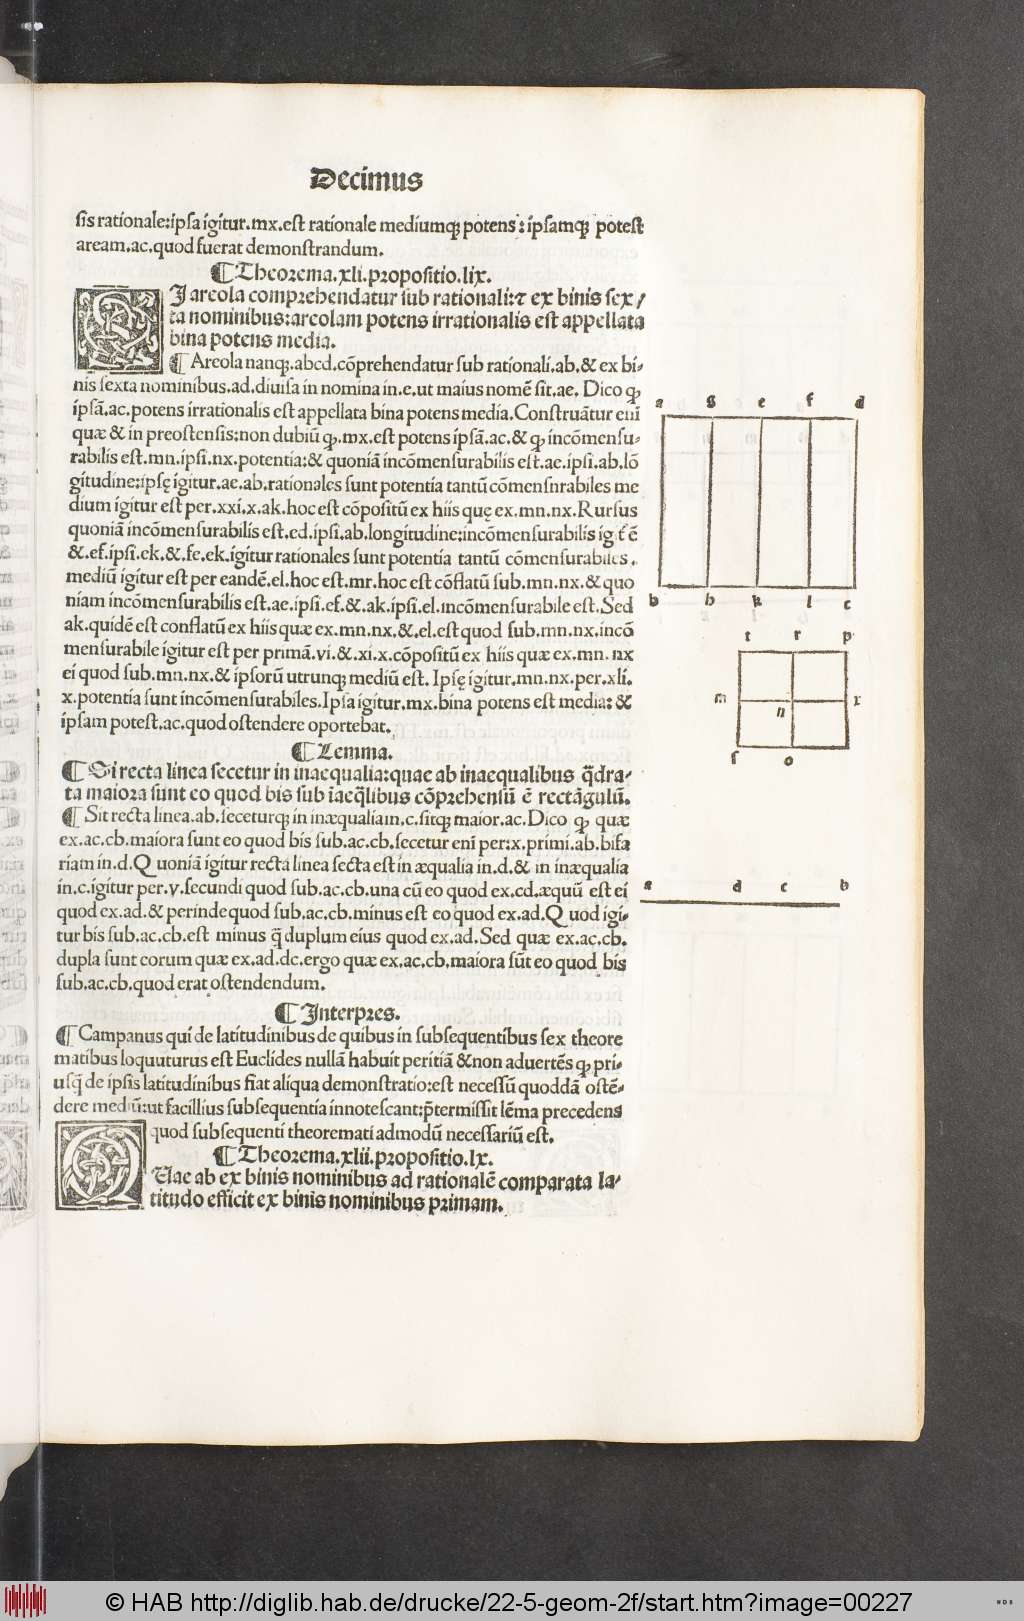 Decimus
sis rationale:ipsa igitur.mx.est rationale mediumq̃ potens: ipsamq̃ potest
aream.ac.quod fuerat demonstrandum.
¶Theorema.xli.propositio.lix.
SI areola comprehendatur sub rationali:⁊ ex binis sex/
ta nominibus:areolam potens irrationalis est appellata
bina potens media.
¶ Areola nanq̃.abcd.cõprehendatur sub rationali.ab.& ex bi-
nis sexta nominibus.ad.diuisa in nomina in.e.ut maius nomẽ sit.ae. Dico ꝙ
ipsã.ac.potens irrationalis est appellata bina potens media.Construãtur eni
quæ & in preostensis:non dubiũ ꝙ.mx.est potens ipsã.ac.& ꝙ incõmensu-
rabilis est.mn.ipsi.nx.potentia:& quoniã incõmensurabilis est.ae.ipsi.ab.lõ
gitudine:ipsę igitur.ae.ab.rationales sunt potentia tantũ cõmensnrabiles me
dium igitur est per.xxi.x.ak.hoc est cõpositũ ex hiis quę ex.mn.nx.Rursus
quoniã incõmensurabilis est.ed.ipsi.ab.longitudine:incõmensurabilis igĩt ẽ
&.ef.ipsi.ek.&.fe.ek.igitur rationales sunt potentia tantũ cõmensurabiles.
mediũ igitur est per eandẽ.el.hoc est.mr.hoc est cõflatũ sub.mn.nx.& quo
niam incõmensurabilis est.ae.ipsi.ef.&.ak.ipsi.el.incõmensurabile est.Sed
ak.quidẽ est conflatũ ex hiis quæ ex.mn.nx.&.el.est quod sub.mn.nx.incõ
mensurabile igitur est per primã.vi.&.xi.x.cõpositũ ex hiis quæ ex.mn.nx
ei quod sub.mn.nx.& ipsorũ utrunq̃ mediũ est. Ipsę igitur.mn.nx.per.xli.
x.potentia sunt incõmensurabiles.Ipsa igitur.mx.bina potens est media: &
ipsam potest.ac.quod ostendere oportebat.
¶Lemma.
¶Si recta linea secetur in inaequalia:quae ab inaequalibus q̃dra-
ta maiora sunt eo quod bis sub ĩaeq̃libus cõprehensũ ẽ rectãgulũ.
¶Sit recta linea.ab.seceturq̃ in inæqualia in.c.sitq̃ maior.ac.Dico ꝙ quæ
ex.ac.cb.maiora sunt eo quod bis sub.ac.cb.secetur eni per:x.primi.ab.bifa
riam in.d.Quoniã igitur recta linea secta est in æqualia in.d.& in inæqualia
in.c.igitur per.v.secundi quod sub.ac.cb.una cũ eo quod ex.cd.æquũ est ei
quod ex.ad.& perinde quod sub.ac.cb.minus est eo quod ex.ad.Quod igi-
tur bis sub.ac.cb.est minus q̃ duplum eius quod ex.ad.Sed quæ ex.ac.cb.
dupla sunt eorum quæ ex.ad.dc.ergo quæ ex.ac.cb.maiora sũt eo quod bis
sub.ac.cb.quod erat ostendendum.
¶Interpres.
¶ Campanus qui de latitudinibus de quibus in subsequentibus sex theore
matibus loquuturus est Euclides nullã habuit peritiã & non aduertẽs ꝙ pri-
usq̃ de ipsis latitudinibus fiat aliqua demonstratio:est necessũ quoddã ostẽ-
dere mediũ:ut facillius subsequentia innotescant:p̃termissit lẽma precedens
quod subsequenti theoremati admodũ necessariũ est.
¶Theorema.xlii.propositio.lx.
QUae ab ex binis nominibus ad rationalẽ comparata la-
titudo efficit ex binis nominibus primam.
a g e f d
b h k l c
t r p
m n x
s o
a d c b
© HAB http://diglib.hab.de/drucke/22-5-geom-2f/start.htm?image=00227